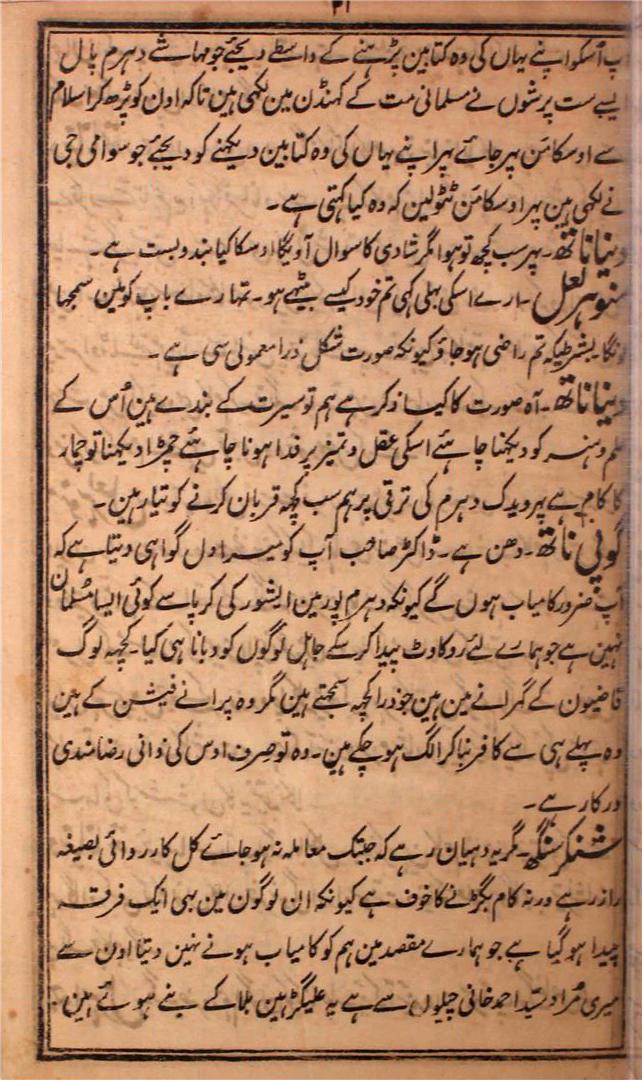 ۳۱
آپ اُسکو اپنے یہاں کی وہ کتابین پڑہنے کے واسطے دیجئے جو مہاشے دہرم پال
ایسے ست پرشوں نے مسلمانی مت کے کہنڈن مین لکھی ہین تاکہ اون کو پڑھ کر اسلام
سے اوسکا مَن پہر جائے پہر اپنے یہاں کی وہ کتابین دیکہنے کو دیجئے جو سوامی جی
نے لکھی ہین پہر اوسکا مَن ٹٹولین کہ وہ کیا کہتی ہے۔
دینا ناتھ۔ پہر سب کچھ تو ہوا مگر شادی کا سوال آویگا اوسکا کیا بندوبست ہے۔
منوہر لعل۔ ارے اسکی بہلی کہی تم خود کیسے بیٹھے ہو۔ تمہارے باپ کو مین سمجھا
لونگا بشرطیکہ تم راضی ہو جاؤ کیونکہ صورت شکل ذرا معمولی سی ہے۔
دینا ناتھ۔ آہ صورت کا کیسا ذکر ہے ہم تو سیرت کے بندے ہین اُس کے
علم و ہنر کو دیکہنا چاہئے اسکی عقل و تمیز پر فدا ہونا چاہئے چمڑا دیکہنا تو چمار
کا کام ہے پہر ویدک دہرم کی ترقی پر ہم سب کچہ قربان کرنے کو تیار ہین۔
گوپی ناتھ۔ دھن ہے۔ ڈاکٹر صاحب آپ کو میرا دل گواہی دیتا ہے کہ
آپ ضرور کامیاب ہوں گے کیونکہ دہرم پور مین ایشور کی کرپا سے کوئی ایسا مُسلمان
نہین ہے جو ہمارے لئے روکاوٹ پیدا کرسکے جاہل لوگوں کو دبانا ہی کیا۔ کچہہ لوگ
قاضیوں کے گہرانے مین ہین جو ذرا کچہ سمجتے ہین مگر وہ پرانے فیشن کے ہین
وہ پہلے ہی سے کافر بنا کر الگ ہو چکے ہین۔ وہ تو صرف اوس کی ذاتی رضامندی
درکار ہے۔
شنکر سنگھ۔ مگر یہ دہیان رہے کہ جبتک معاملہ نہ ہو جائے کل کارروائی بصیغہ
راز رہے ورنہ کام بگڑنے کا خوف ہے کیونکہ ان لوگون مین بہی ایک فرقہ
پیدا ہو گیا ہے جو ہمارے مقصد مین ہم کو کامیاب ہونے نہین دیتا اون سے
میری مُراد سیّد احمد خانی چیلوں سے ہے یہ علیگڑہین بلا کے بنے ہوئے ہین۔